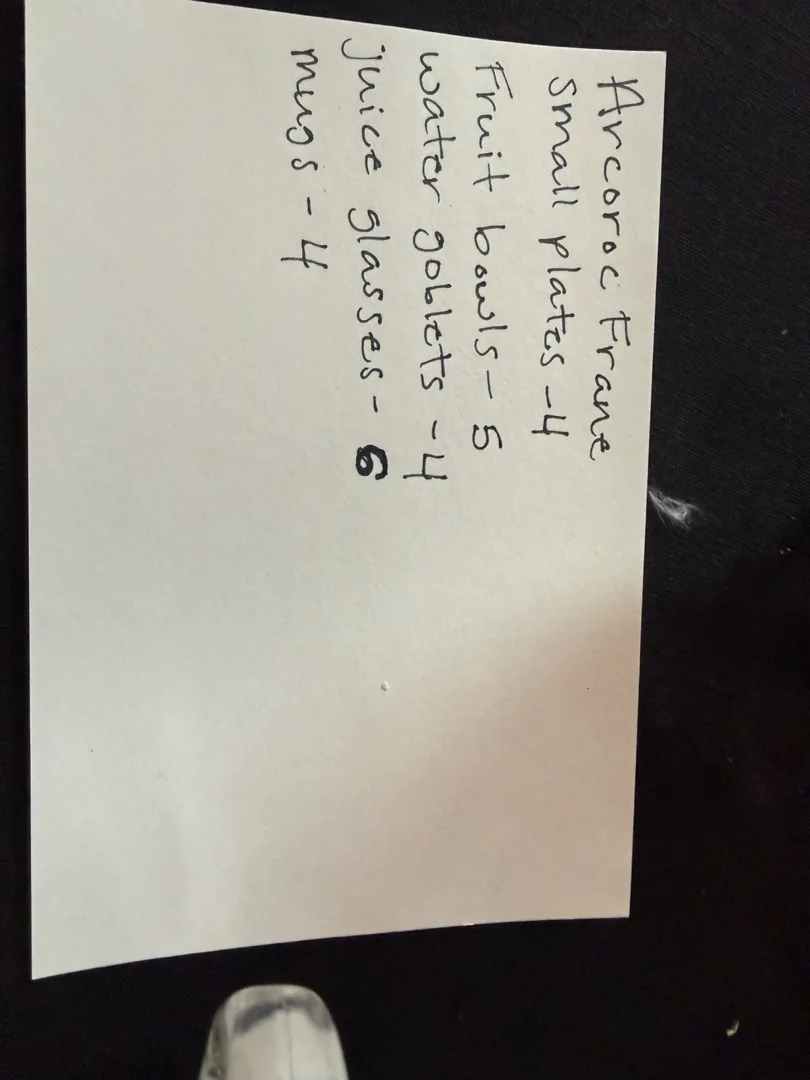 Arcoroc Frane
small plates - 4
Fruit bowls - 5
water goblets - 4
juice glasses - 6
mugs - 4